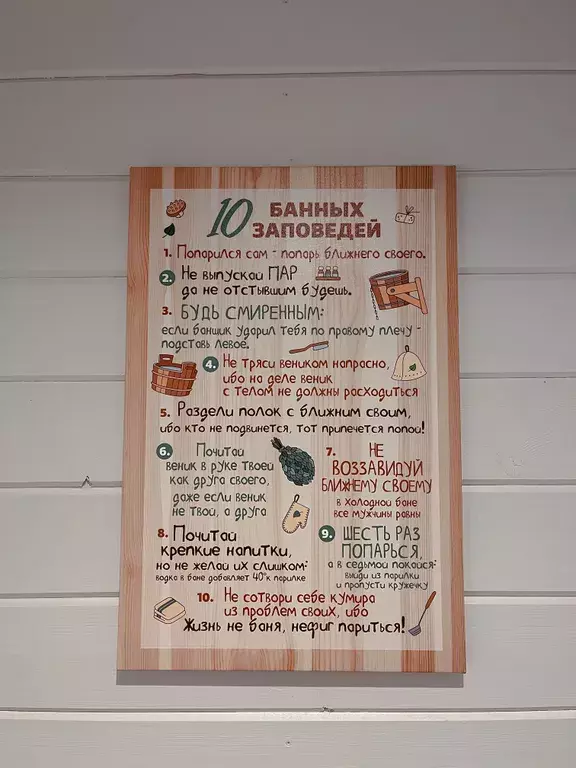 10 БАННЫХ
ЗАПОВЕДЕЙ
1. Попарился сам - попарь ближнего своего.
2. Не выпускай ПАР
да не отстывшим будешь.
3. БУДЬ СМИРЕННЫМ:
если банщик ударил тебя по правому плечу -
подставь левое.
4. Не тряси веником напрасно,
ибо на деле веник
с телом не должны расходиться
5. Раздели полок с ближним своим,
ибо кто не подвинется, тот припечется попой!
6. Почитай
веник в руке твоей
как друга своего,
даже если веник
не твой, а друга
7. НЕ
ВОЗЗАВИДУЙ
БЛИЖНЕМУ СВОЕМУ
в холодной бане
все мужчины равны
8. Почитай
крепкие напитки,
но не желай их слишком:
водка в бане добавляет 40°к парилке
9. ШЕСТЬ РАЗ
ПОПАРЬСЯ,
а в седьмой покайся:
выйди из парилки
и пропусти кружечку
10. Не сотвори себе кумира
из проблем своих, ибо
Жизнь не баня, нефиг париться!